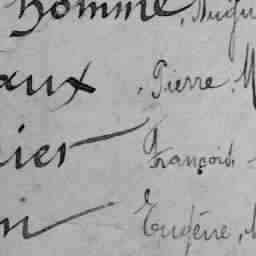 homme, Augu
aux, Pierre, M
ier François
in Eugène,